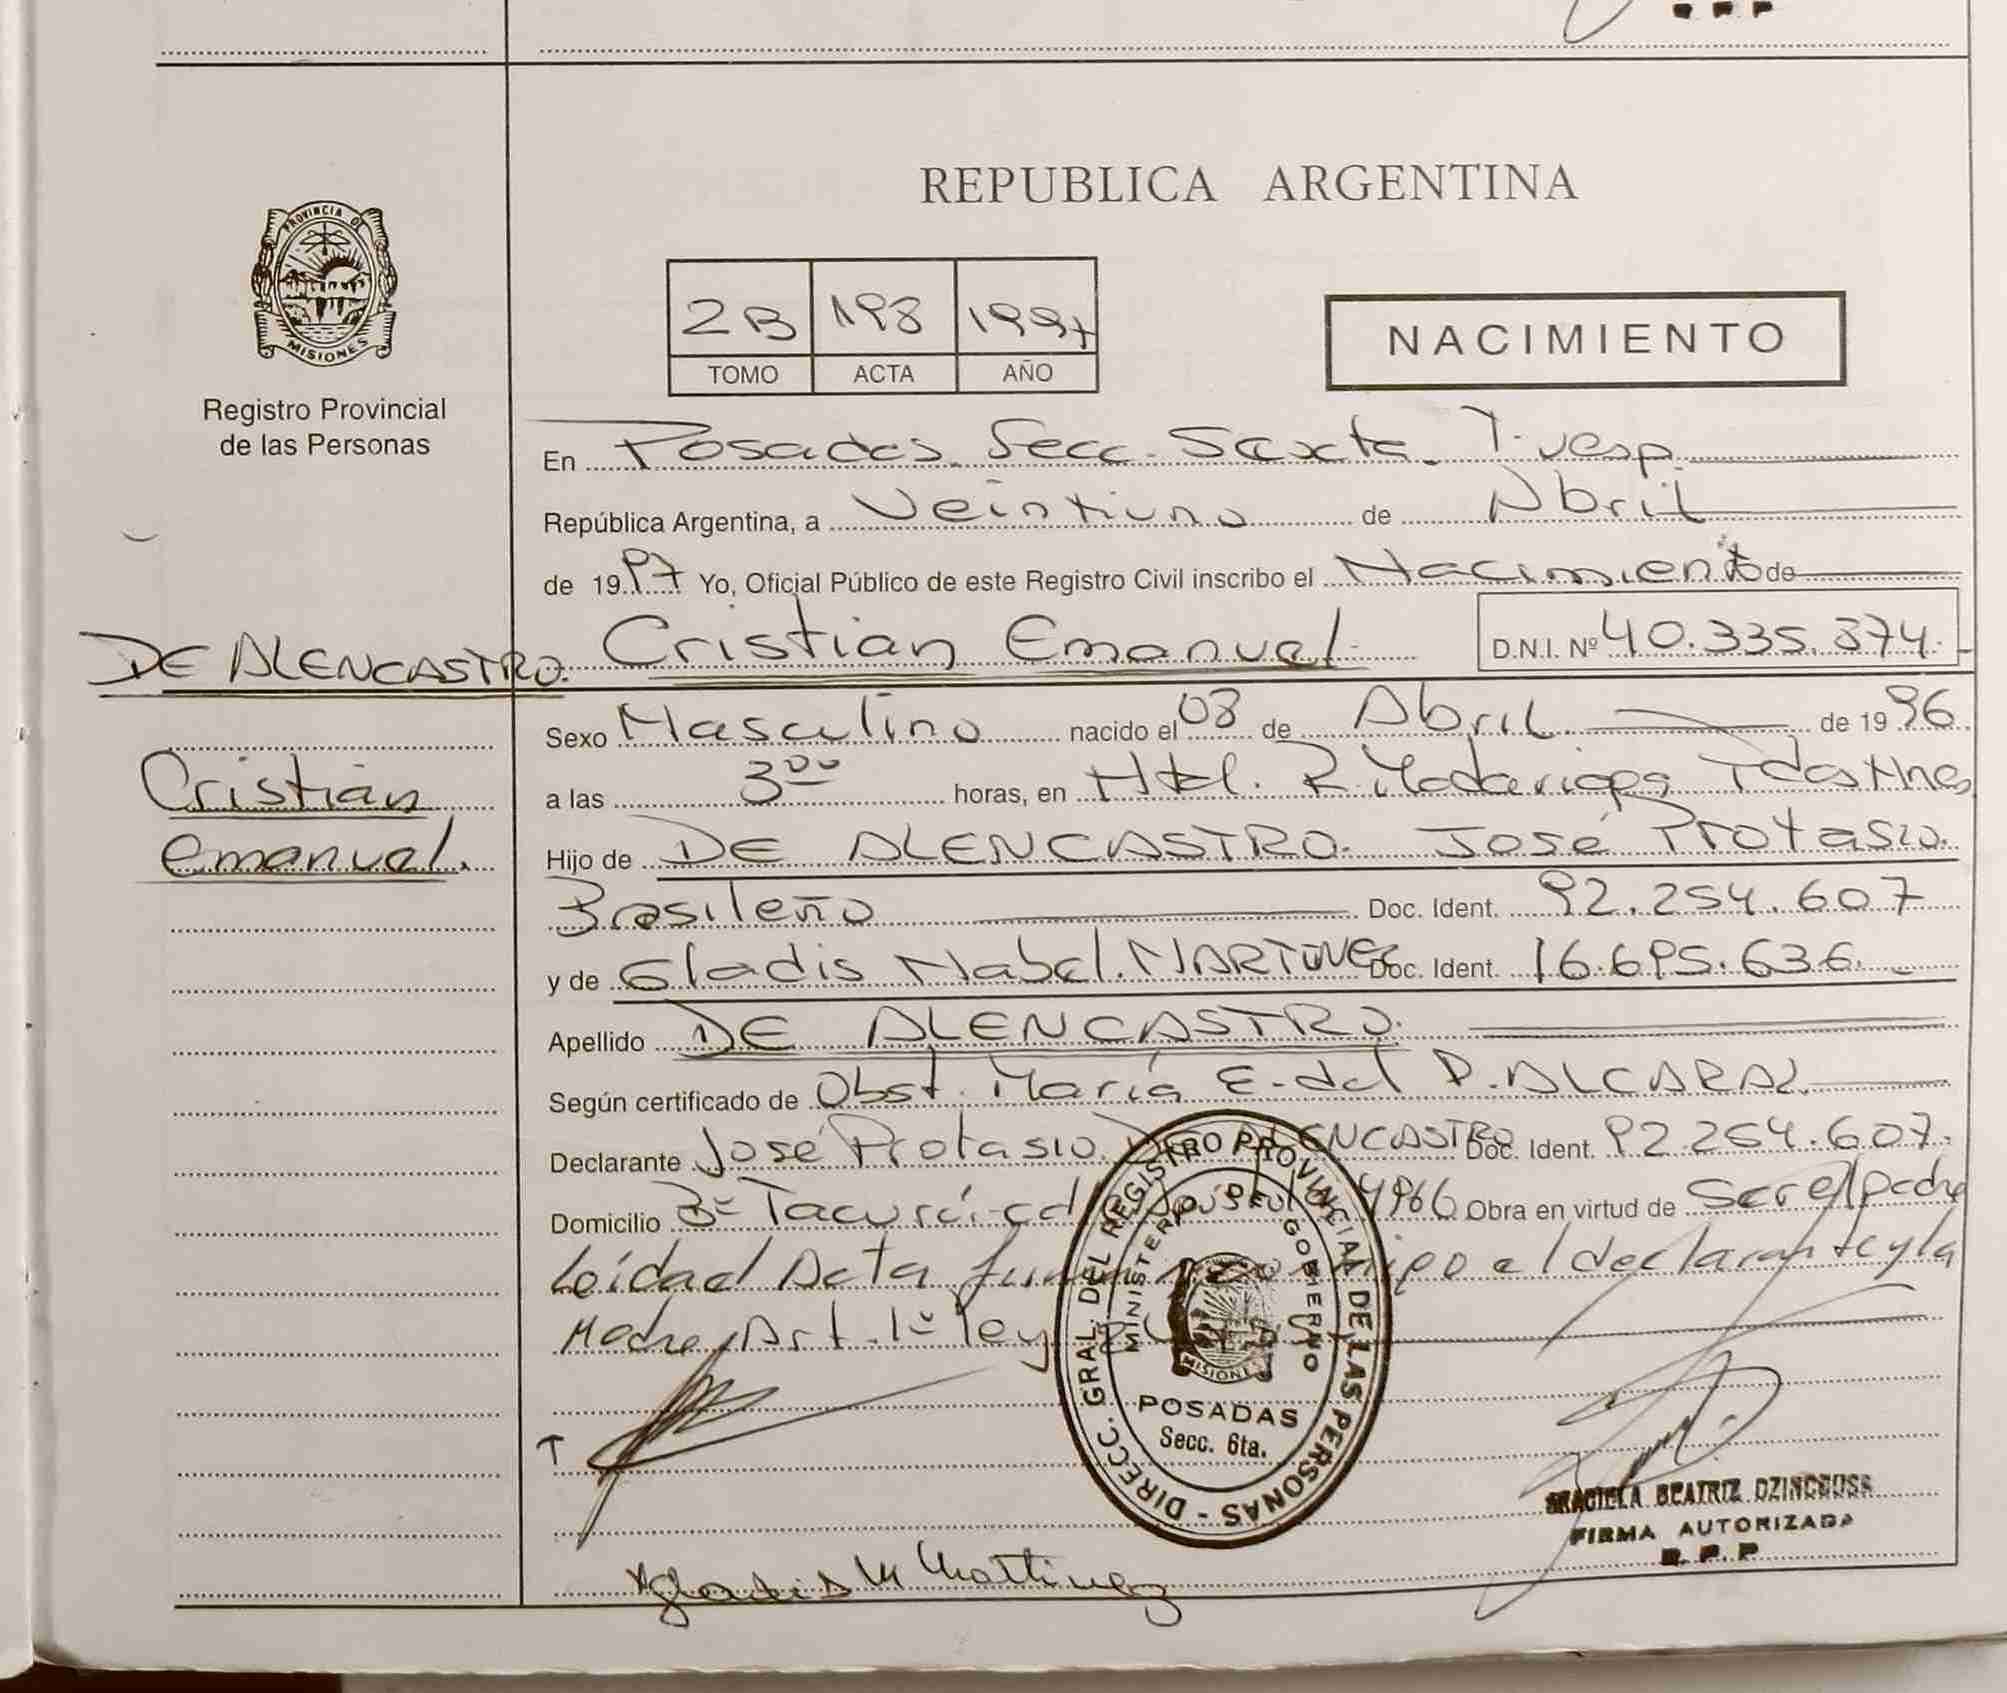 R.P.P
REPUBLICA ARGENTINA
PROVINCIA DE MISIONES
Registro Provincial
de las Personas
2B 198 1997
TOMO ACTA AÑO
NACIMIENTO
En Posadas. Secc. Sexta. T. vesp.
República Argentina, a Veintiuno de Abril
de 1997 Yo, Oficial Público de este Registro Civil inscribo el Nacimiento de
DE ALENCASTRO. Cristian Emanuel. D.N.I. Nº 40.335.374.
Sexo Masculino nacido el 08 de Abril. de 1996
Cristian
Emanuel.
a las 3⁰⁰ horas, en Htal. R. Madariaga Pdas Mnes
Hijo de DE ALENCASTRO. José Protasio.
Brasileño Doc. Ident. 92.254.607
y de Gladis Mabel. MARTINEZ Doc. Ident. 16.695.636.
Apellido DE ALENCASTRO.
Según certificado de Obst. María E. del P. ALCARAZ.
Declarante José Protasio DE ALENCASTRO Doc. Ident. 92.254.607.
Domicilio Bº Tacurú. 4966 Obra en virtud de Ser el padre
Leída el Acta el declarante y la
Madre, Art. 1º ley
DIRECC. GRAL. DEL REGISTRO PROVINCIAL DE LAS PERSONAS
MINISTERIO GOBIERNO
MISIONES
POSADAS
Secc. 6ta.
GRACIELA BEATRIZ
FIRMA AUTORIZADA
R.P.P
Gladis M Martinez